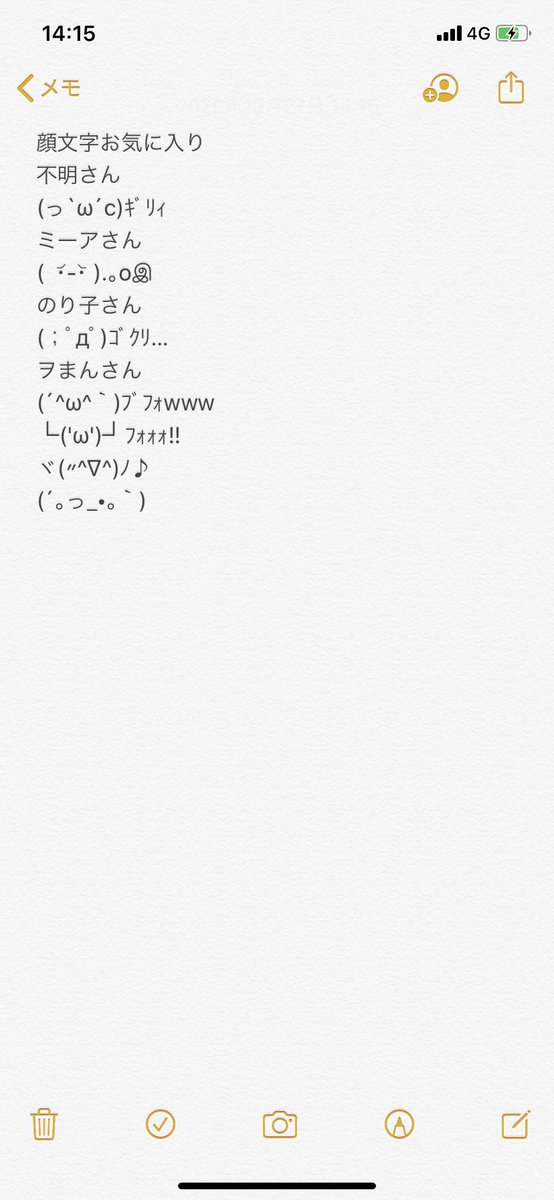 14:15
4G
メモ
顔文字お気に入り
不明さん
(っ`ω´c)ｷﾞﾘｨ
ミーアさん
( ˙᷄-˙᷅ ).｡oஇ
のり子さん
(；ﾟдﾟ)ｺﾞｸﾘ…
ヲまんさん
(´^ω^｀)ﾌﾞﾌｫwww
└('ω')┘ﾌｫｫｫ!!
ヾ(〃^∇^)ﾉ♪
(´｡っ_•｡｀)